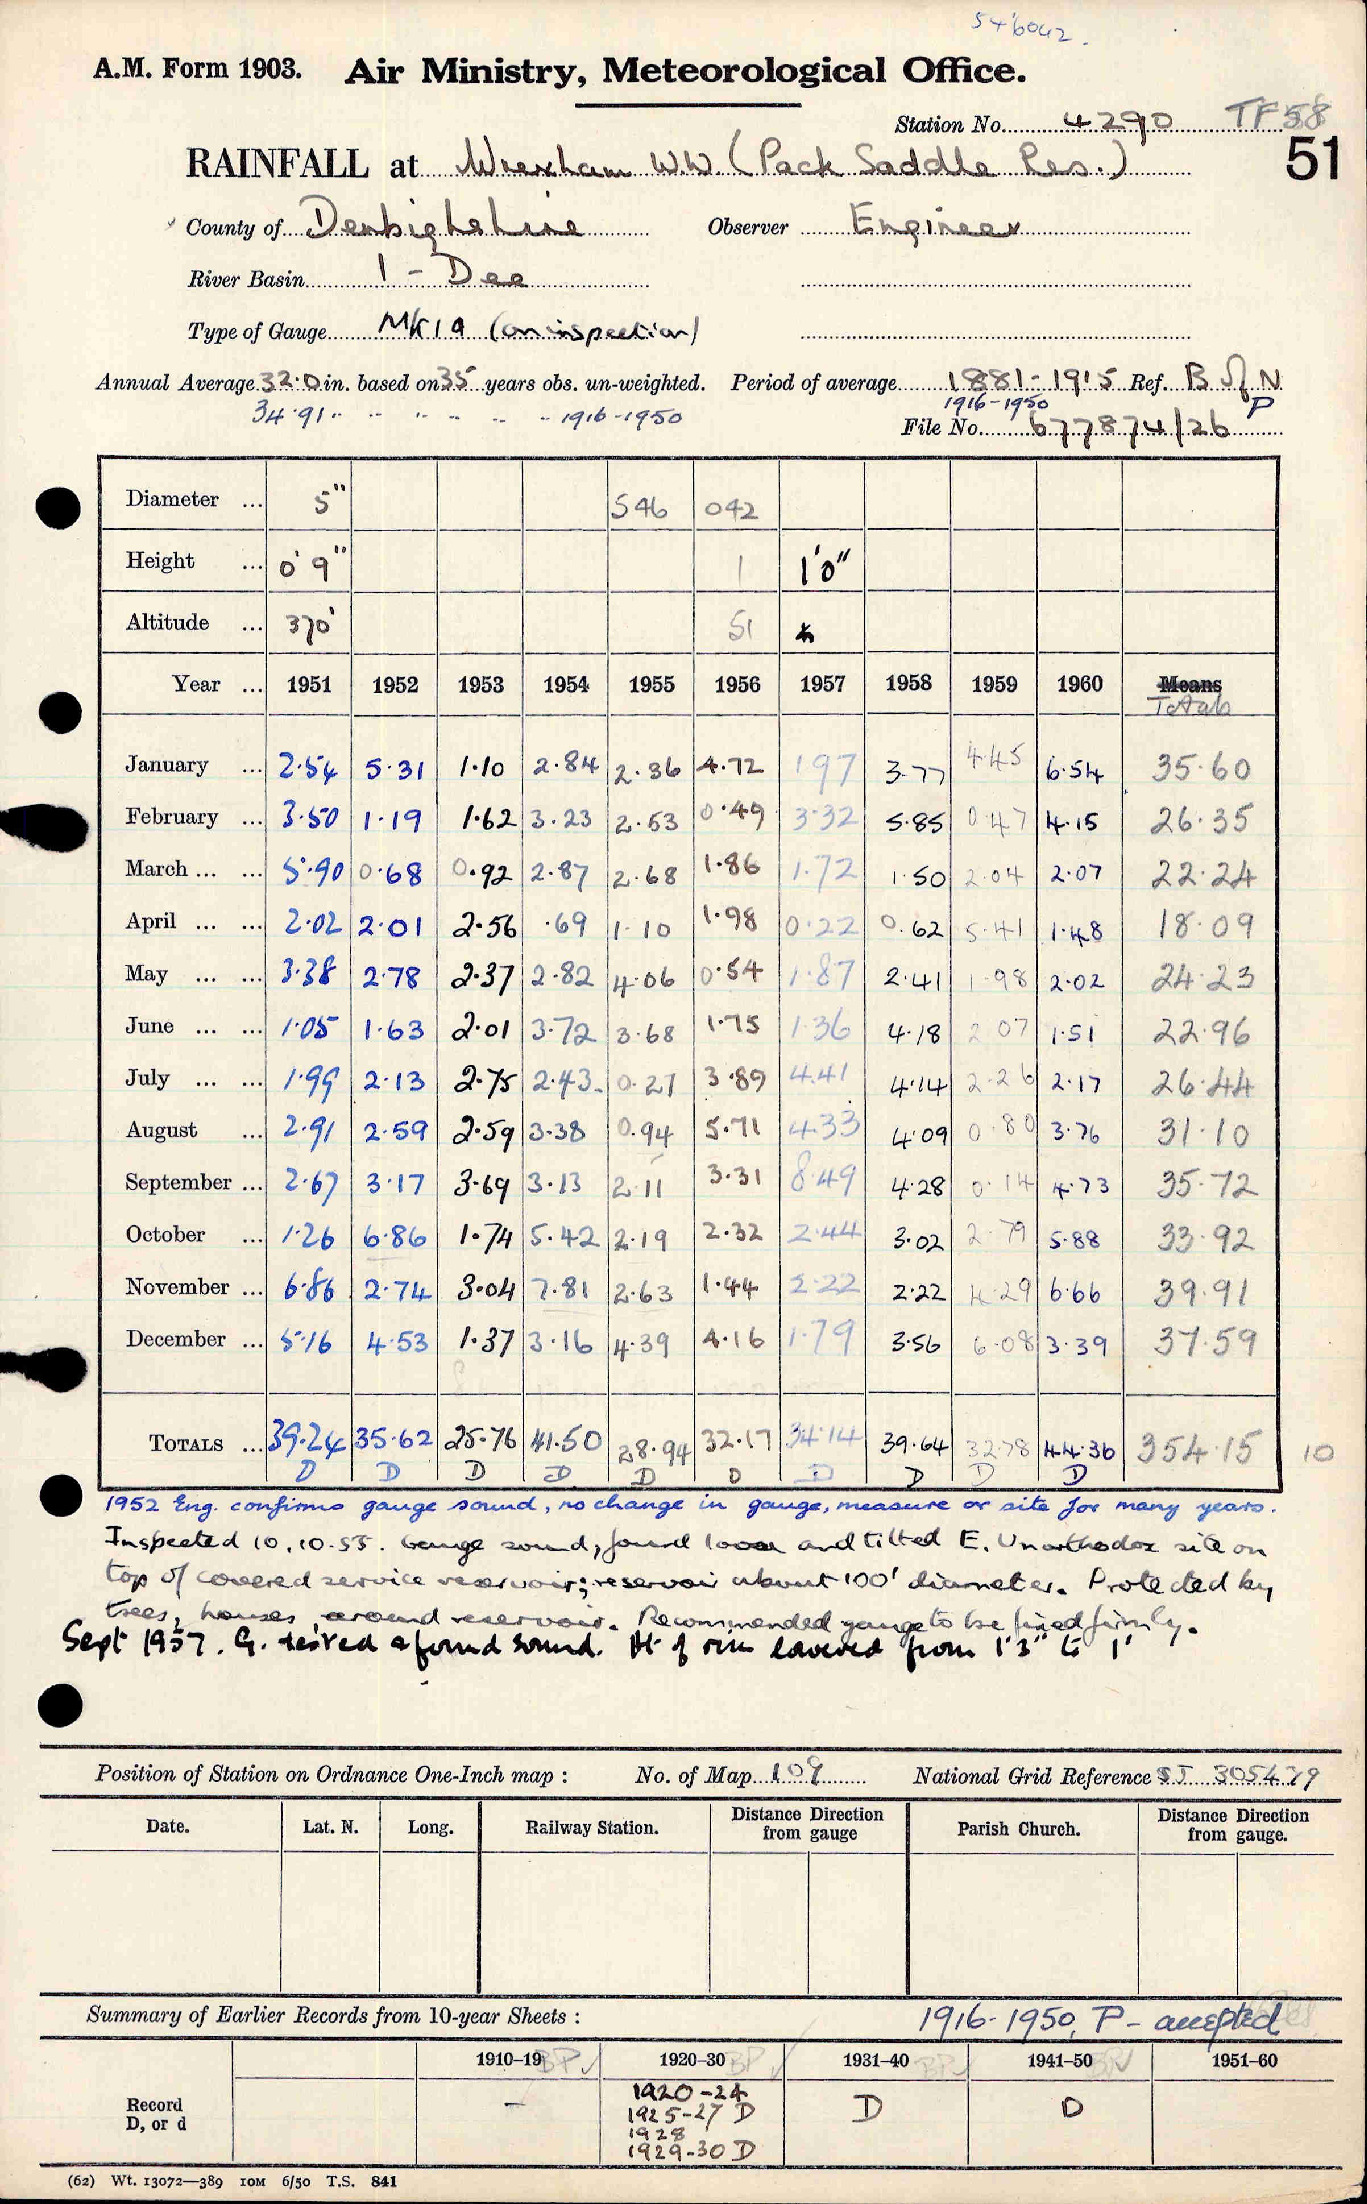 546042.
A.M. Form 1903. Air Ministry, Meteorological Office.
Station No. 4290 TF58
RAINFALL at Wrexham W.W. (Pack Saddle Res.) 51
County of Denbighshire Observer Engineer
River Basin 1 - Dee
Type of Gauge MK1A (on inspection)
Annual Average 32.0 in. based on 35 years obs. un-weighted. Period of average 1881-1915 Ref. B of N
34.91 " " " " " " 1916-1950 1916-1950 P
File No. 677874/26
Diameter ... 5" 546 042
Height ... 0' 9" 1 1'0"
Altitude ... 370' 51
Year ... 1951 1952 1953 1954 1955 1956 1957 1958 1959 1960 Means
Totals
January ... 2.54 5.31 1.10 2.84 2.36 4.72 1.97 3.77 4.45 6.54 35.60
February ... 3.50 1.19 1.62 3.23 2.53 0.49 3.32 5.85 0.47 4.15 26.35
March ... ... 5.90 0.68 0.92 2.87 2.68 1.86 1.72 1.50 2.04 2.07 22.24
April ... ... 2.02 2.01 2.56 .69 1.10 1.98 0.22 0.62 5.41 1.48 18.09
May ... ... 3.38 2.78 2.37 2.82 4.06 0.54 1.87 2.41 1.98 2.02 24.23
June ... ... 1.05 1.63 2.01 3.72 3.68 1.75 1.36 4.18 2.07 1.51 22.96
July ... ... 1.99 2.13 2.75 2.43 0.27 3.89 4.41 4.14 2.26 2.17 26.44
August ... 2.91 2.59 2.59 3.38 0.94 5.71 4.33 4.09 0.80 3.76 31.10
September ... 2.67 3.17 3.69 3.13 2.11 3.31 8.49 4.28 0.14 4.73 35.72
October ... 1.26 6.86 1.74 5.42 2.19 2.32 2.44 3.02 2.79 5.88 33.92
November ... 6.86 2.74 3.04 7.81 2.63 1.44 2.22 2.22 4.29 6.66 39.91
December ... 5.16 4.53 1.37 3.16 4.39 4.16 1.79 3.56 6.08 3.39 37.59
TOTALS ... 39.24 35.62 25.76 41.50 28.94 32.17 34.14 39.64 32.78 44.36 354.15 10
D D D D D D D D D D
1952 Eng. confirms gauge sound, no change in gauge, measure or site for many years.
Inspected 10.10.55. Gauge sound, found loose and tilted E. Unorthodox site on
top of covered service reservoir; reservoir about 100' diameter. Protected by
trees, houses around reservoir. Recommended gauge to be fixed firmly.
Sept 1957. G. tested & found sound. Ht of rim lowered from 1'3" to 1'
Position of Station on Ordnance One-Inch map : No. of Map 109 National Grid Reference SJ 305479
Date. Lat. N. Long. Railway Station. Distance Direction from gauge Parish Church. Distance Direction from gauge.
Summary of Earlier Records from 10-year Sheets : 1916-1950, P - accepted
1910-19 BP ✓ 1920-30 BP ✓ 1931-40 BP ✓ 1941-50 BP ✓ 1951-60
Record D, or d - 1920-24 D D
1925-27 D
1928
1929-30 D
(62) Wt. 13072—389 10M 6/50 T.S. 841